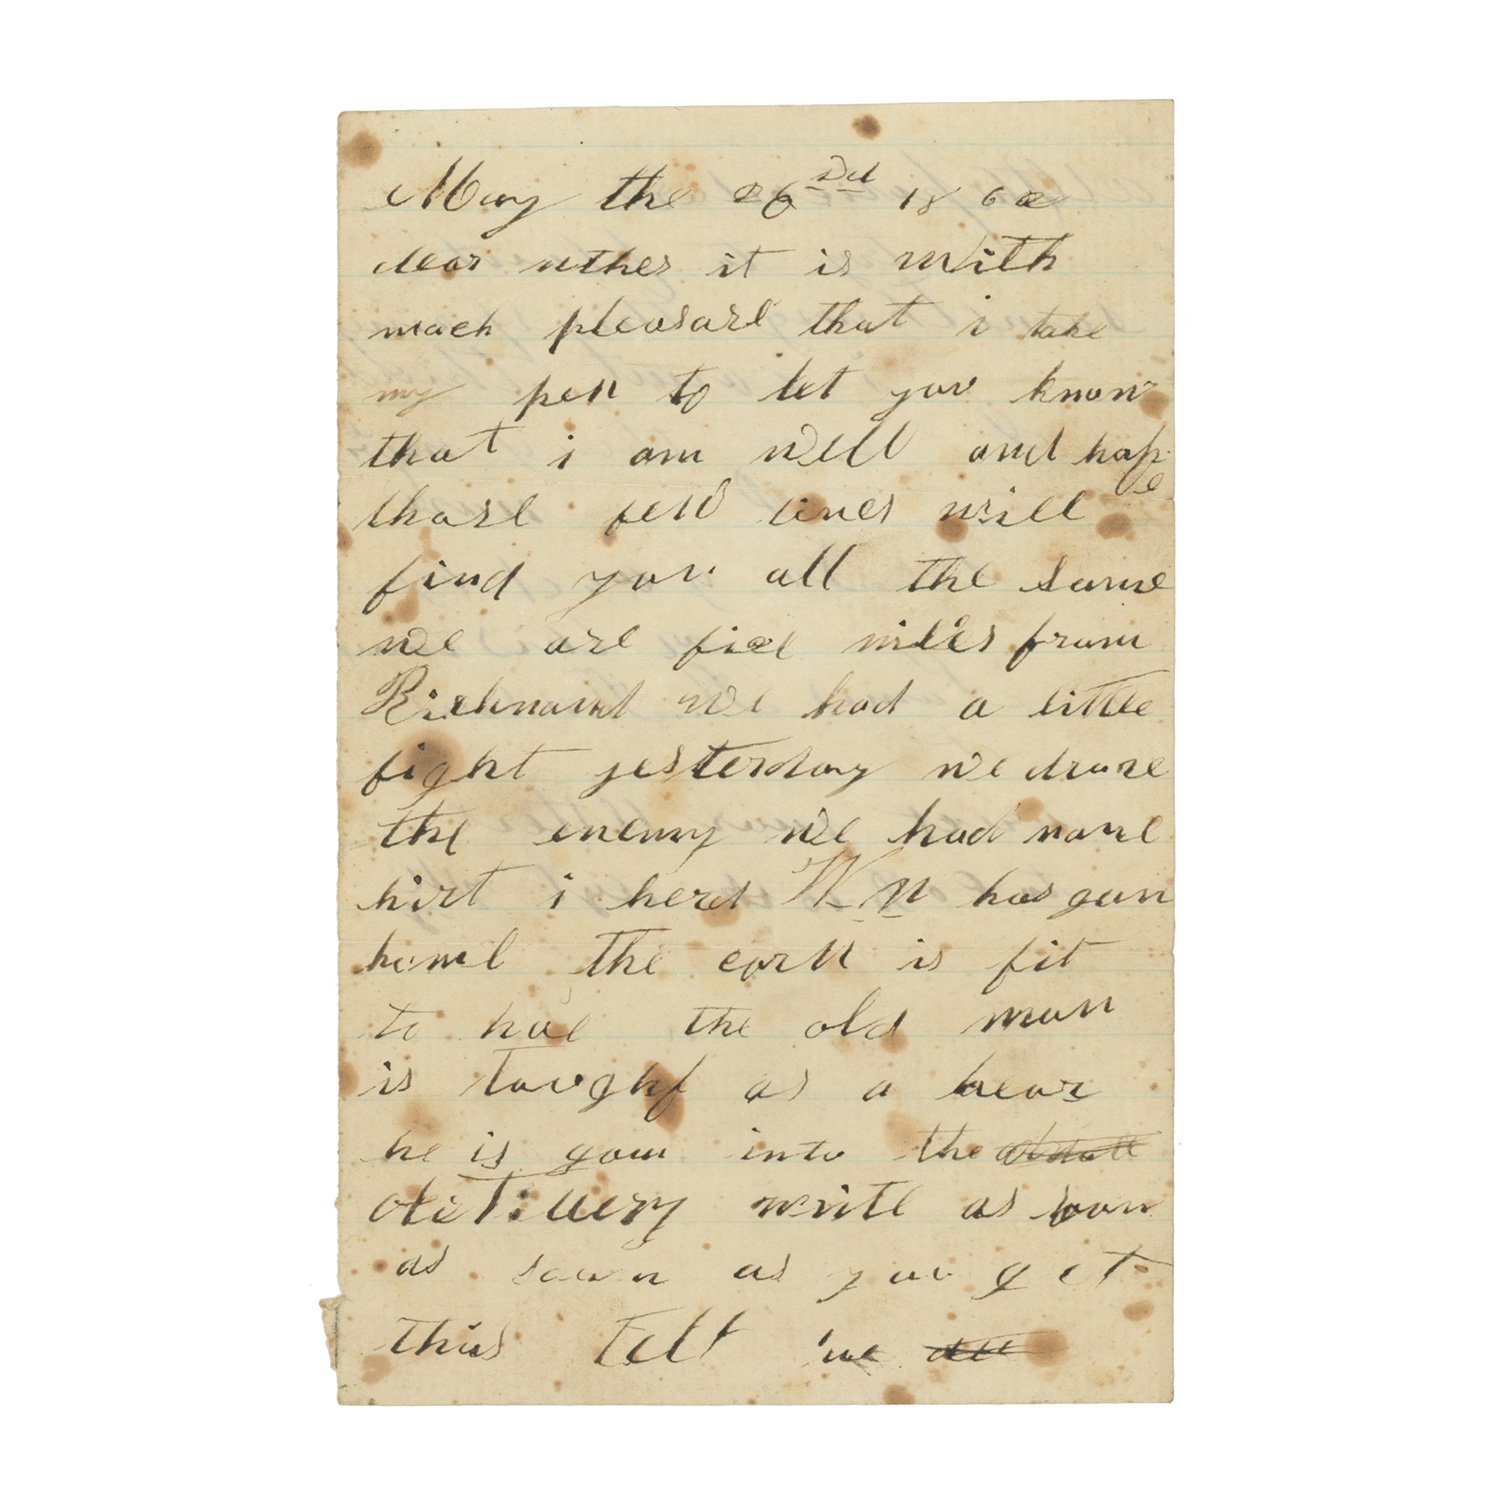 May the 26nd 1862
dear uther it is with
mach pleasarl that i take
my pen to let you know
that i am well and hape
tharl few lines will
find you all the same
we are five miles from
Richmond we had a little
fight yesterday we drove
the enemy we had none
hirt i herd Wm has gon
home the corn is fit
to hoe the old man
is toughf as a bear
he is gow into the
distillery write as soon
as soown as you get
this tell